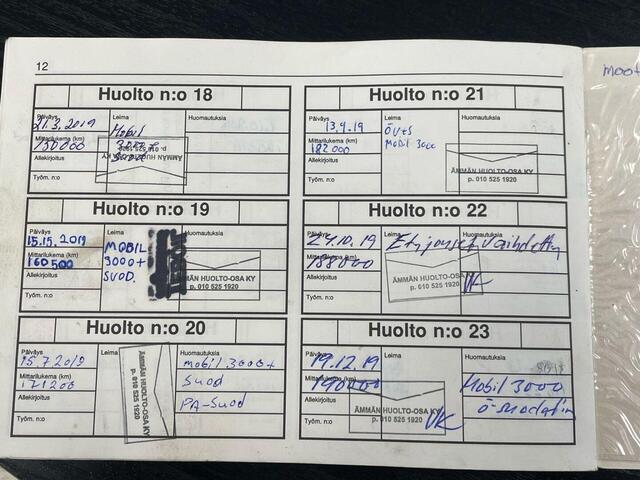 12
Huolto n:o 18
Päiväys
21.3.2019
Leima
Mobil
3000 +
Huomautuksia
Mittarilukema (km)
150000
Allekirjoitus
Työm. n:o
ÄMMÄN HUOLTO-OSA KY
p. 010 525 1920
Huolto n:o 19
Päiväys
15.15.2019
Leima
MOBIL
3000+
SUOD.
Huomautuksia
Mittarilukema (km)
160500
Allekirjoitus
Työm. n:o
ÄMMÄN HUOLTO-OSA KY
p. 010 525 1920
Huolto n:o 20
Päiväys
15.7.2019
Leima
Huomautuksia
mobil 3000+
suod
PA-suod
Mittarilukema (km)
171200
Allekirjoitus
Työm. n:o
ÄMMÄN HUOLTO-OSA KY
p. 010 525 1920
Huolto n:o 21
Päiväys
13.9.19
Leima
Ö V+S
MOBIL 3000
Huomautuksia
Mittarilukema (km)
182000
Allekirjoitus
Työm. n:o
ÄMMÄN HUOLTO-OSA KY
p. 010 525 1920
Huolto n:o 22
Päiväys
24.10.19
Leima
Etujouset vaihdettu
Huomautuksia
Mittarilukema (km)
188000
Allekirjoitus
Työm. n:o
ÄMMÄN HUOLTO-OSA KY
p. 010 525 1920
VK
Huolto n:o 23
Päiväys
19.12.19
Leima
Huomautuksia
Mobil 3000
Mittarilukema (km)
190000
Allekirjoitus
Työm. n:o
ÄMMÄN HUOLTO-OSA KY
p. 010 525 1920
VK